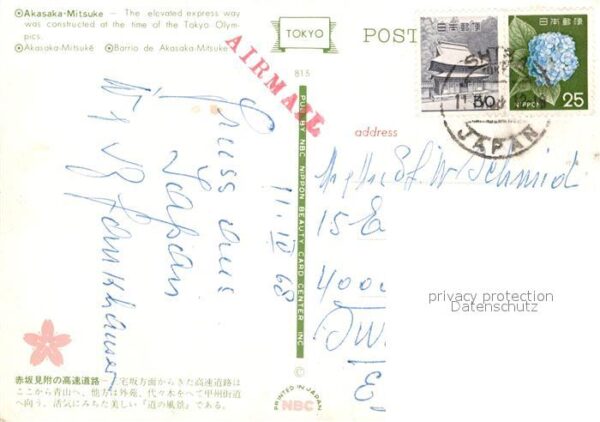 Akasaka-Mitsuke — The elevated express way
was constructed at the time of the Tokyo Olym-
pics.
Akasaka-Mitsuké Barrio de Akasaka-Mitsuke
TOKYO
POST
815
AIRMAIL
日本郵便
30
日本郵便
NIPPON 25
JAPAN
address
PUB. BY NBC NIPPON BEAUTY CARD CENTER INC
Gruss aus
Japan
11. IV 68
Schmid
15 E
400
privacy protection
Datenschutz
赤坂見附の高速道路—三宅坂方面からきた高速道路は
ここから青山へ、他方は外苑、代々木をへて甲州街道
へ向う。活気にみちた美しい『道の風景』である。
©
PRINTED IN JAPAN
NBC